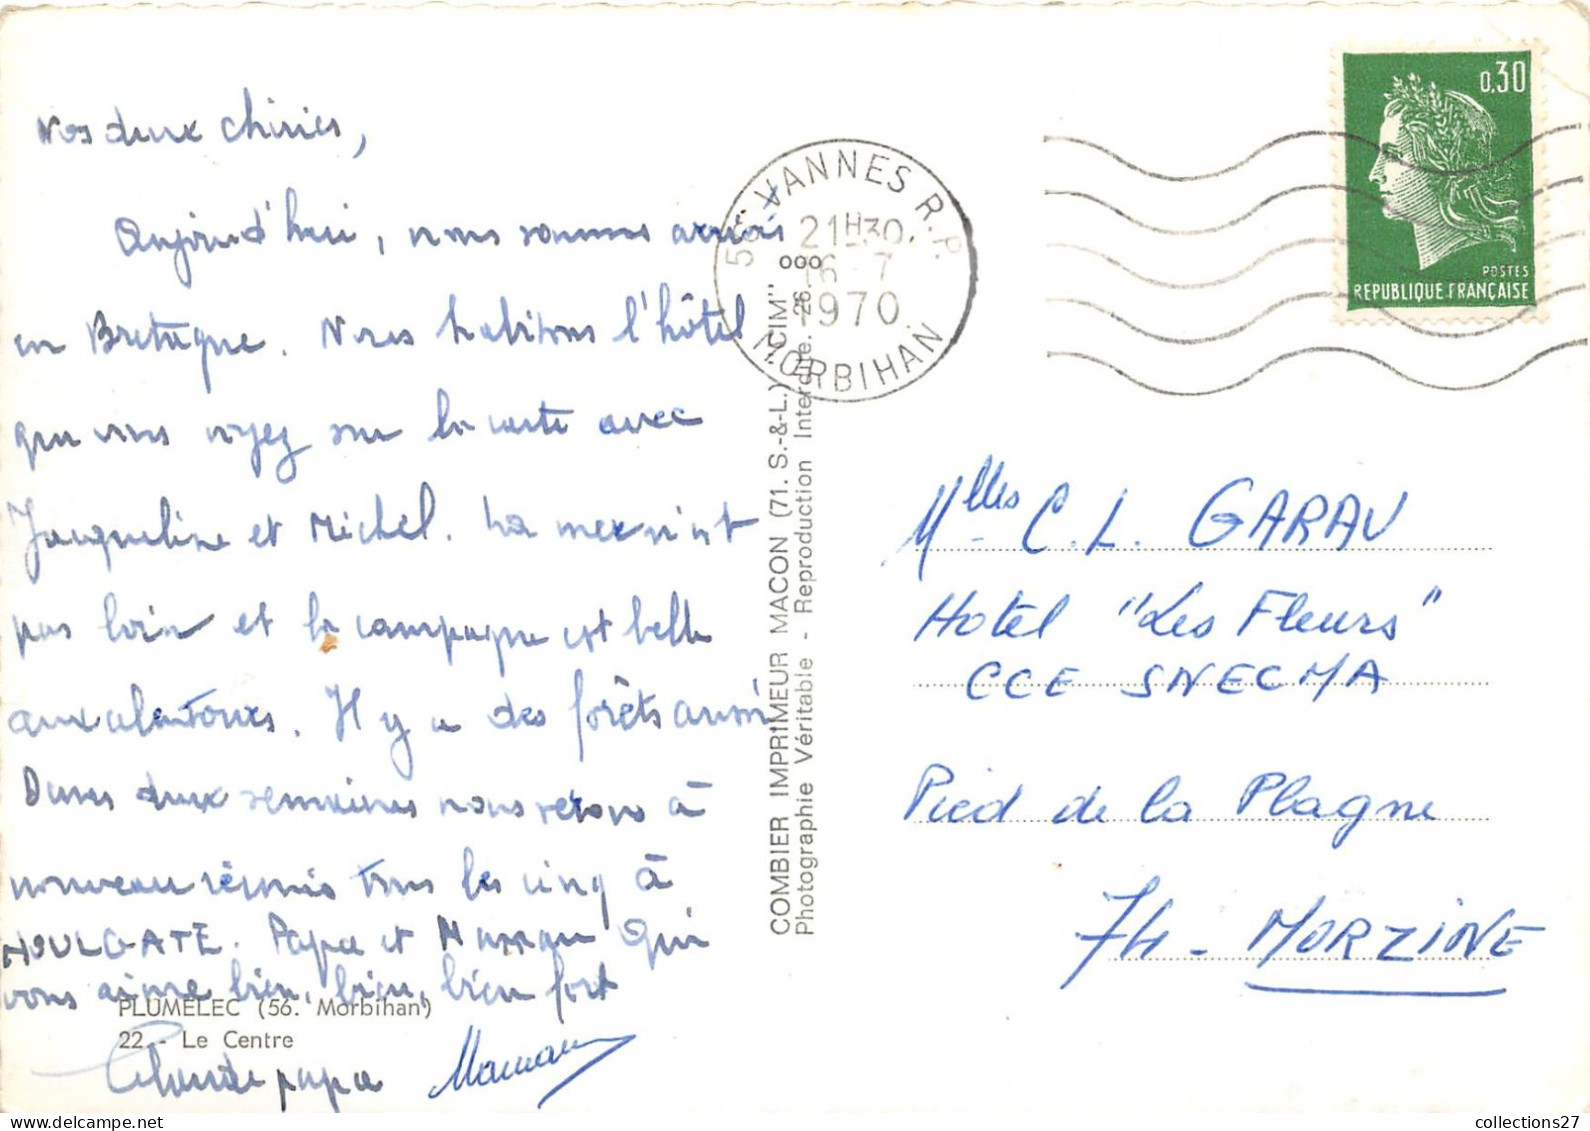 Nos deux chéries,
Aujourd'hui, nous sommes arrivés
en Bretagne. Nous habitons l'hôtel
que vous voyez sur la carte avec
Jacqueline et Michel. La mer n'est
pas loin et la campagne est belle
aux alentours. Il y a des forêts aussi
Dans deux semaines nous serons à
nouveau réunis tous les cinq à
HOULGATE. Papa et Maman qui
vous aime bien, bien, bien fort
PLUMELEC (56. Morbihan)
22. - Le Centre
papa Maman
COMBIER IMPRIMEUR MACON (71. S.-&-L.) "CIM"
Photographie Véritable - Reproduction Interdite.
56 VANNES R.P.
21H30
16-7
1970
MORBIHAN
0,30
POSTES
REPUBLIQUE FRANÇAISE
Mlles C.L. GARAU
Hotel "Les Fleurs"
CCE SNECMA
Pied de la Plagne
74 - MORZINE
collections27